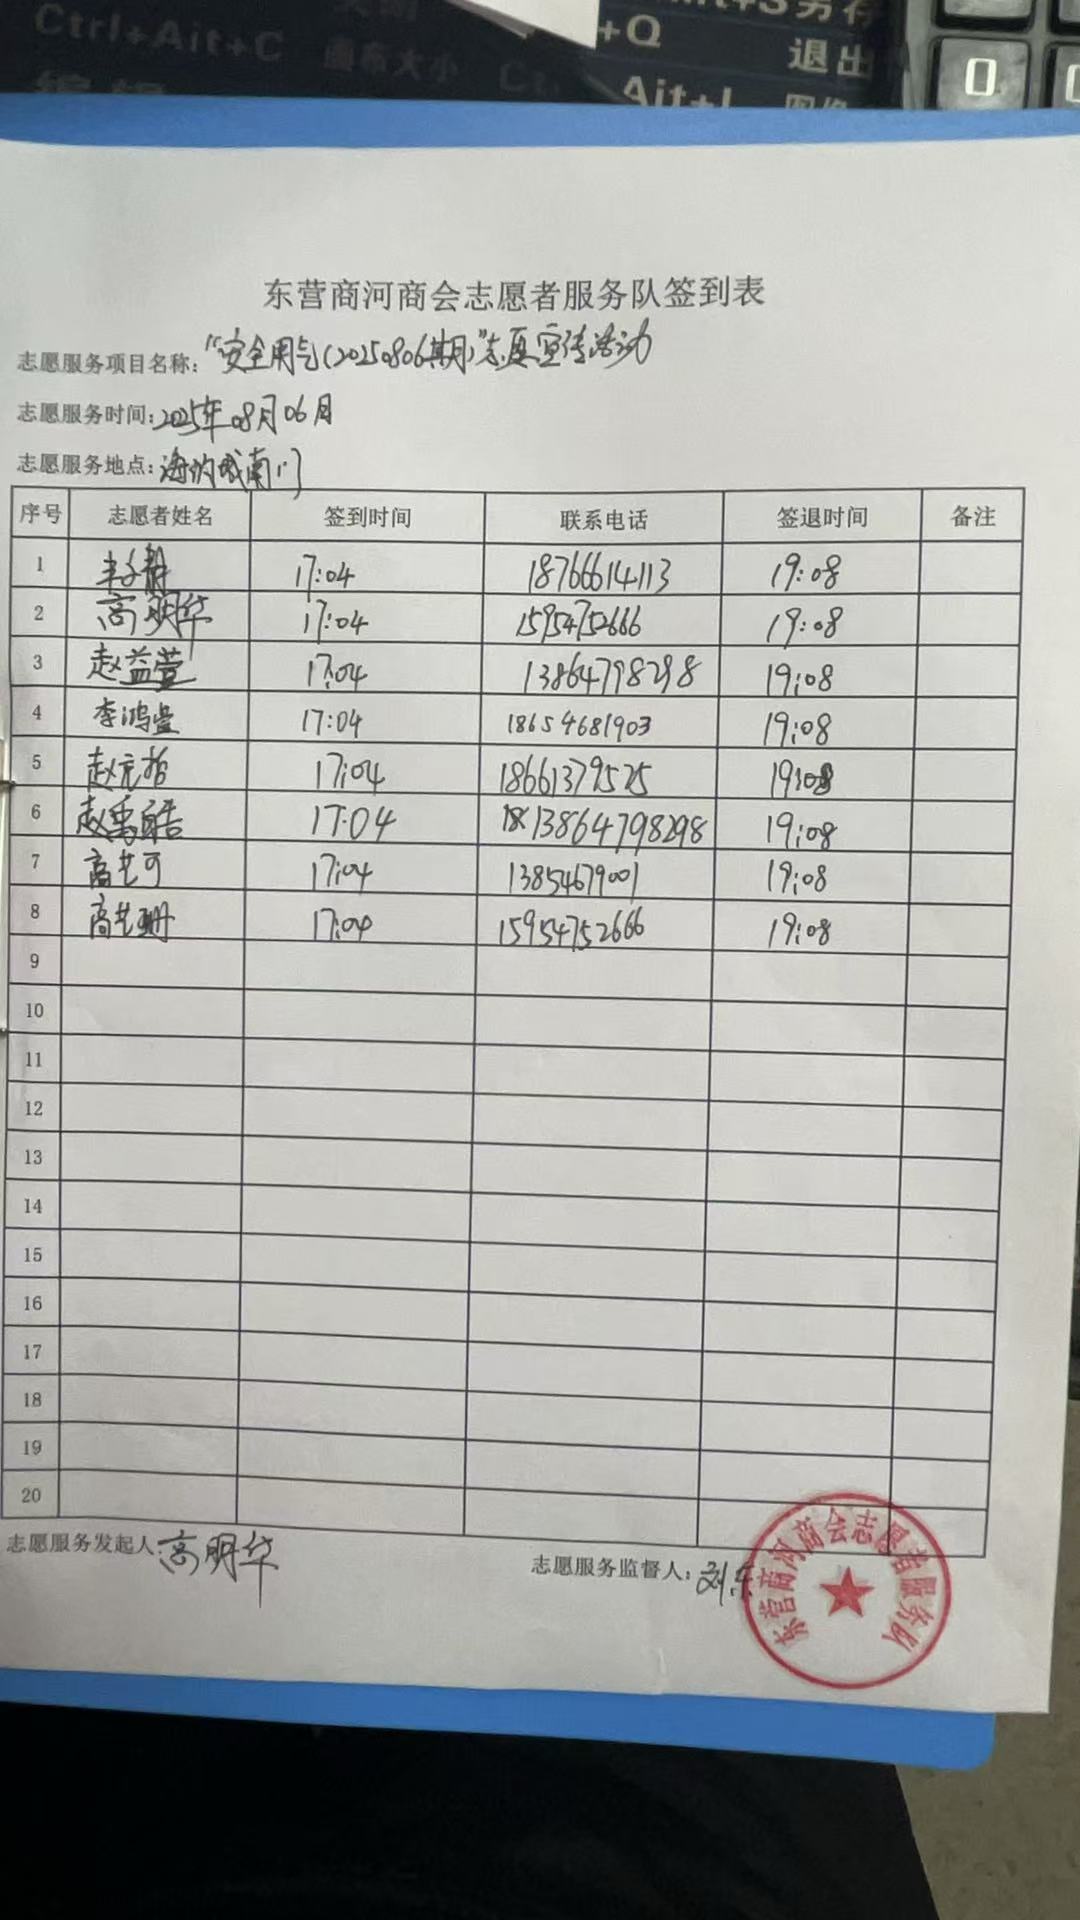 Ctrl+Ait+C 画布大小
+Q 退出
Ait+
0
东营商河商会志愿者服务队签到表
志愿服务项目名称:"安全用气(20250806期)"志愿宣传活动
志愿服务时间:2025年08月06日
志愿服务地点:海纳城南门
序号 志愿者姓名 签到时间 联系电话 签退时间 备注
1 17:04 18766614113 19:08
2 高明华 17:04 15954752666 19:08
3 赵益萱 17:04 13864798298 19:08
4 李鸿 17:04 18654681903 19:08
5 赵元 17:04 18661379525 19:08
6 赵禹皓 17:04 13864798298 19:08
7 高艺可 17:04 13854679001 19:08
8 高艺珊 17:04 15954752666 19:08
9
10
11
12
13
14
15
16
17
18
19
20
志愿服务发起人:高明华 志愿服务监督人:刘东
东营商河商会志愿者服务队